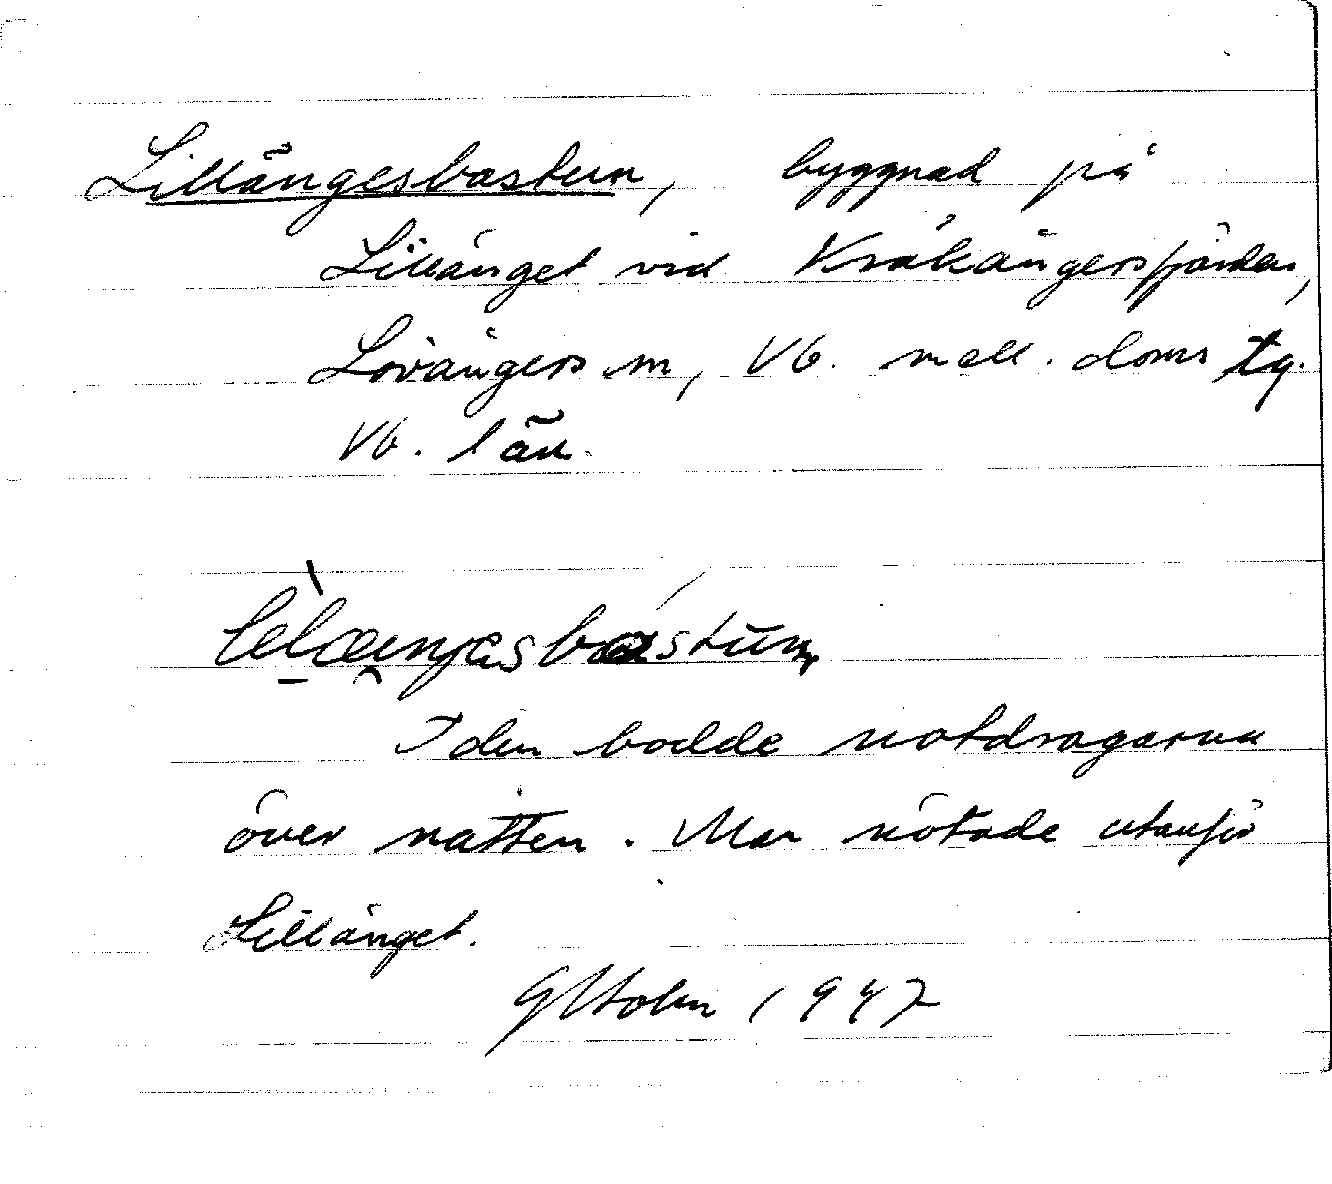 Lillängesbastun, byggnad på
Lillänget vid Kråkångersfjärden,
Lövångers sn, Vb. mell. doms tg.
Vb. län.
lìlæŋǥesbástūn
I den bodde notdragarna
över natten. Man nötade utanför
Lillänget.
G Holm 1947